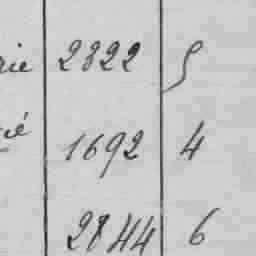 rie 2822 5
ié 1692 4
2844 6